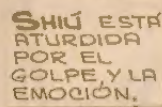 SHIÚ ESTÁ
ATURDIDA
POR EL
GOLPE, Y LA
EMOCIÓN.